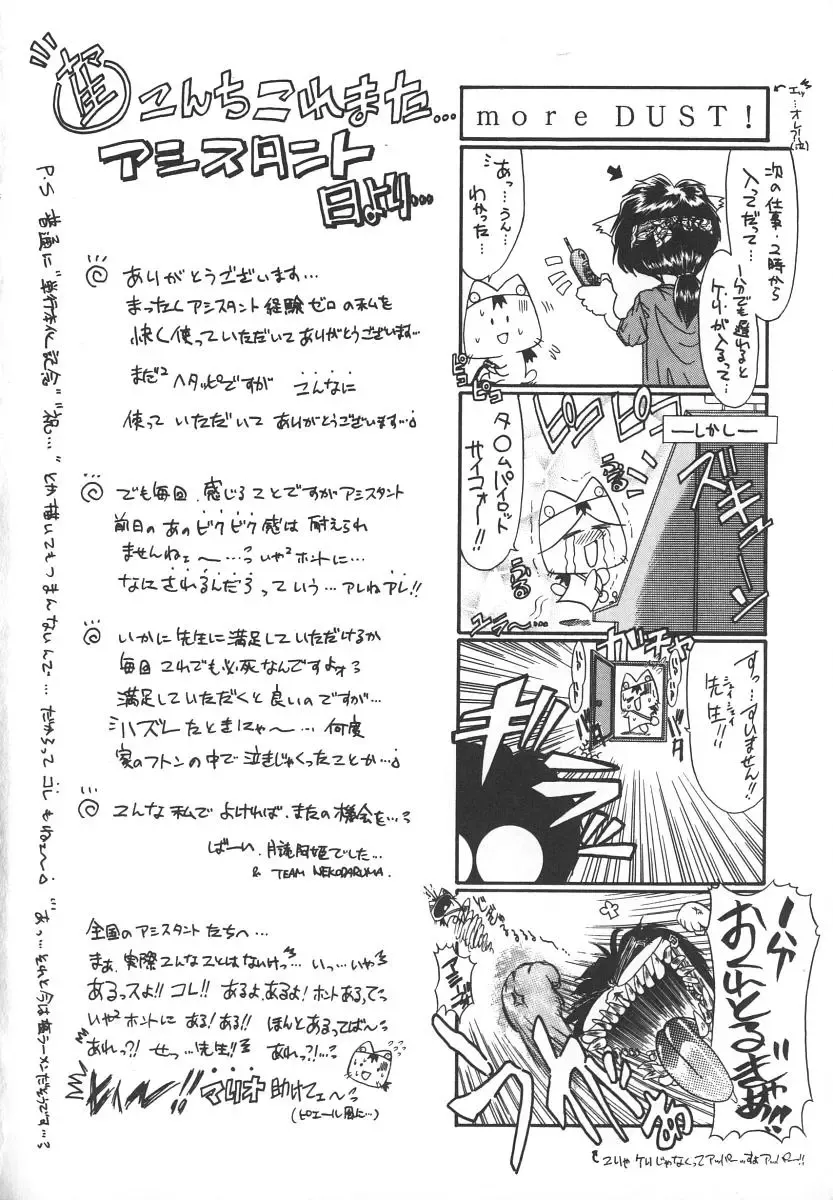 こんちこれまた…
アシスタント
日より…
ありがとうございます…
まったくアシスタント経験ゼロの私を
快く使っていただいてありがとうございます…
まだ²ヘタッピですが こんなに
使っていただいてありがとうございます…
でも毎回、感じることですがアシスタント
前日のあのビクビク感は耐えられ
ませんねェ〜…いや²ホントに…
なにされるんだろっていう…アレねアレ!!
いかに先生に満足していただけるか
毎回これでも必死なんですよォ
満足していただくと良いのですが…
ハズレたときにゃ〜…何度
家のフトンの中で泣きじゃくったことか…
こんな私でよければ、またの機会を…
ばーい、
でした…
& TEAM NEKODARUMA.
全国のアシスタントたちへ…
まぁ、実際こんなことはないけっ…いっ…いや
あるっスよ!!コレ!!あるよ、あるよ!ホントあるって
いや²ホントにある!ある!!ほんとあるってば〜
あれっ?!せっ…先生!!あれっ?!…
助けてェ〜
(ピエール風に…)
P.S 普通に“単行本化記念”“祝…”とか描いてもつまんないんで…だからってコレもねェ〜
“あっ…とれと今は塩ラーメンだそうです…
more DUST!
エッ…オレ?!(泣)
次の仕事、2時から
入ってだって…
1分でも遅れると
ケリが入るって…
あっ…うん…
わかった…
ピョコピョコ
—しかし—
ピピピ
ズギューン
タ〇ムパイロット
サイコォー!!
ぷるぷる
ユラ〜…
ガチャ
バタ
すっ…すいません!!
先生!!
1分
おくれとるぎゃあ!!
こりゃケリじゃなくってアッパーっすよアッパー!!